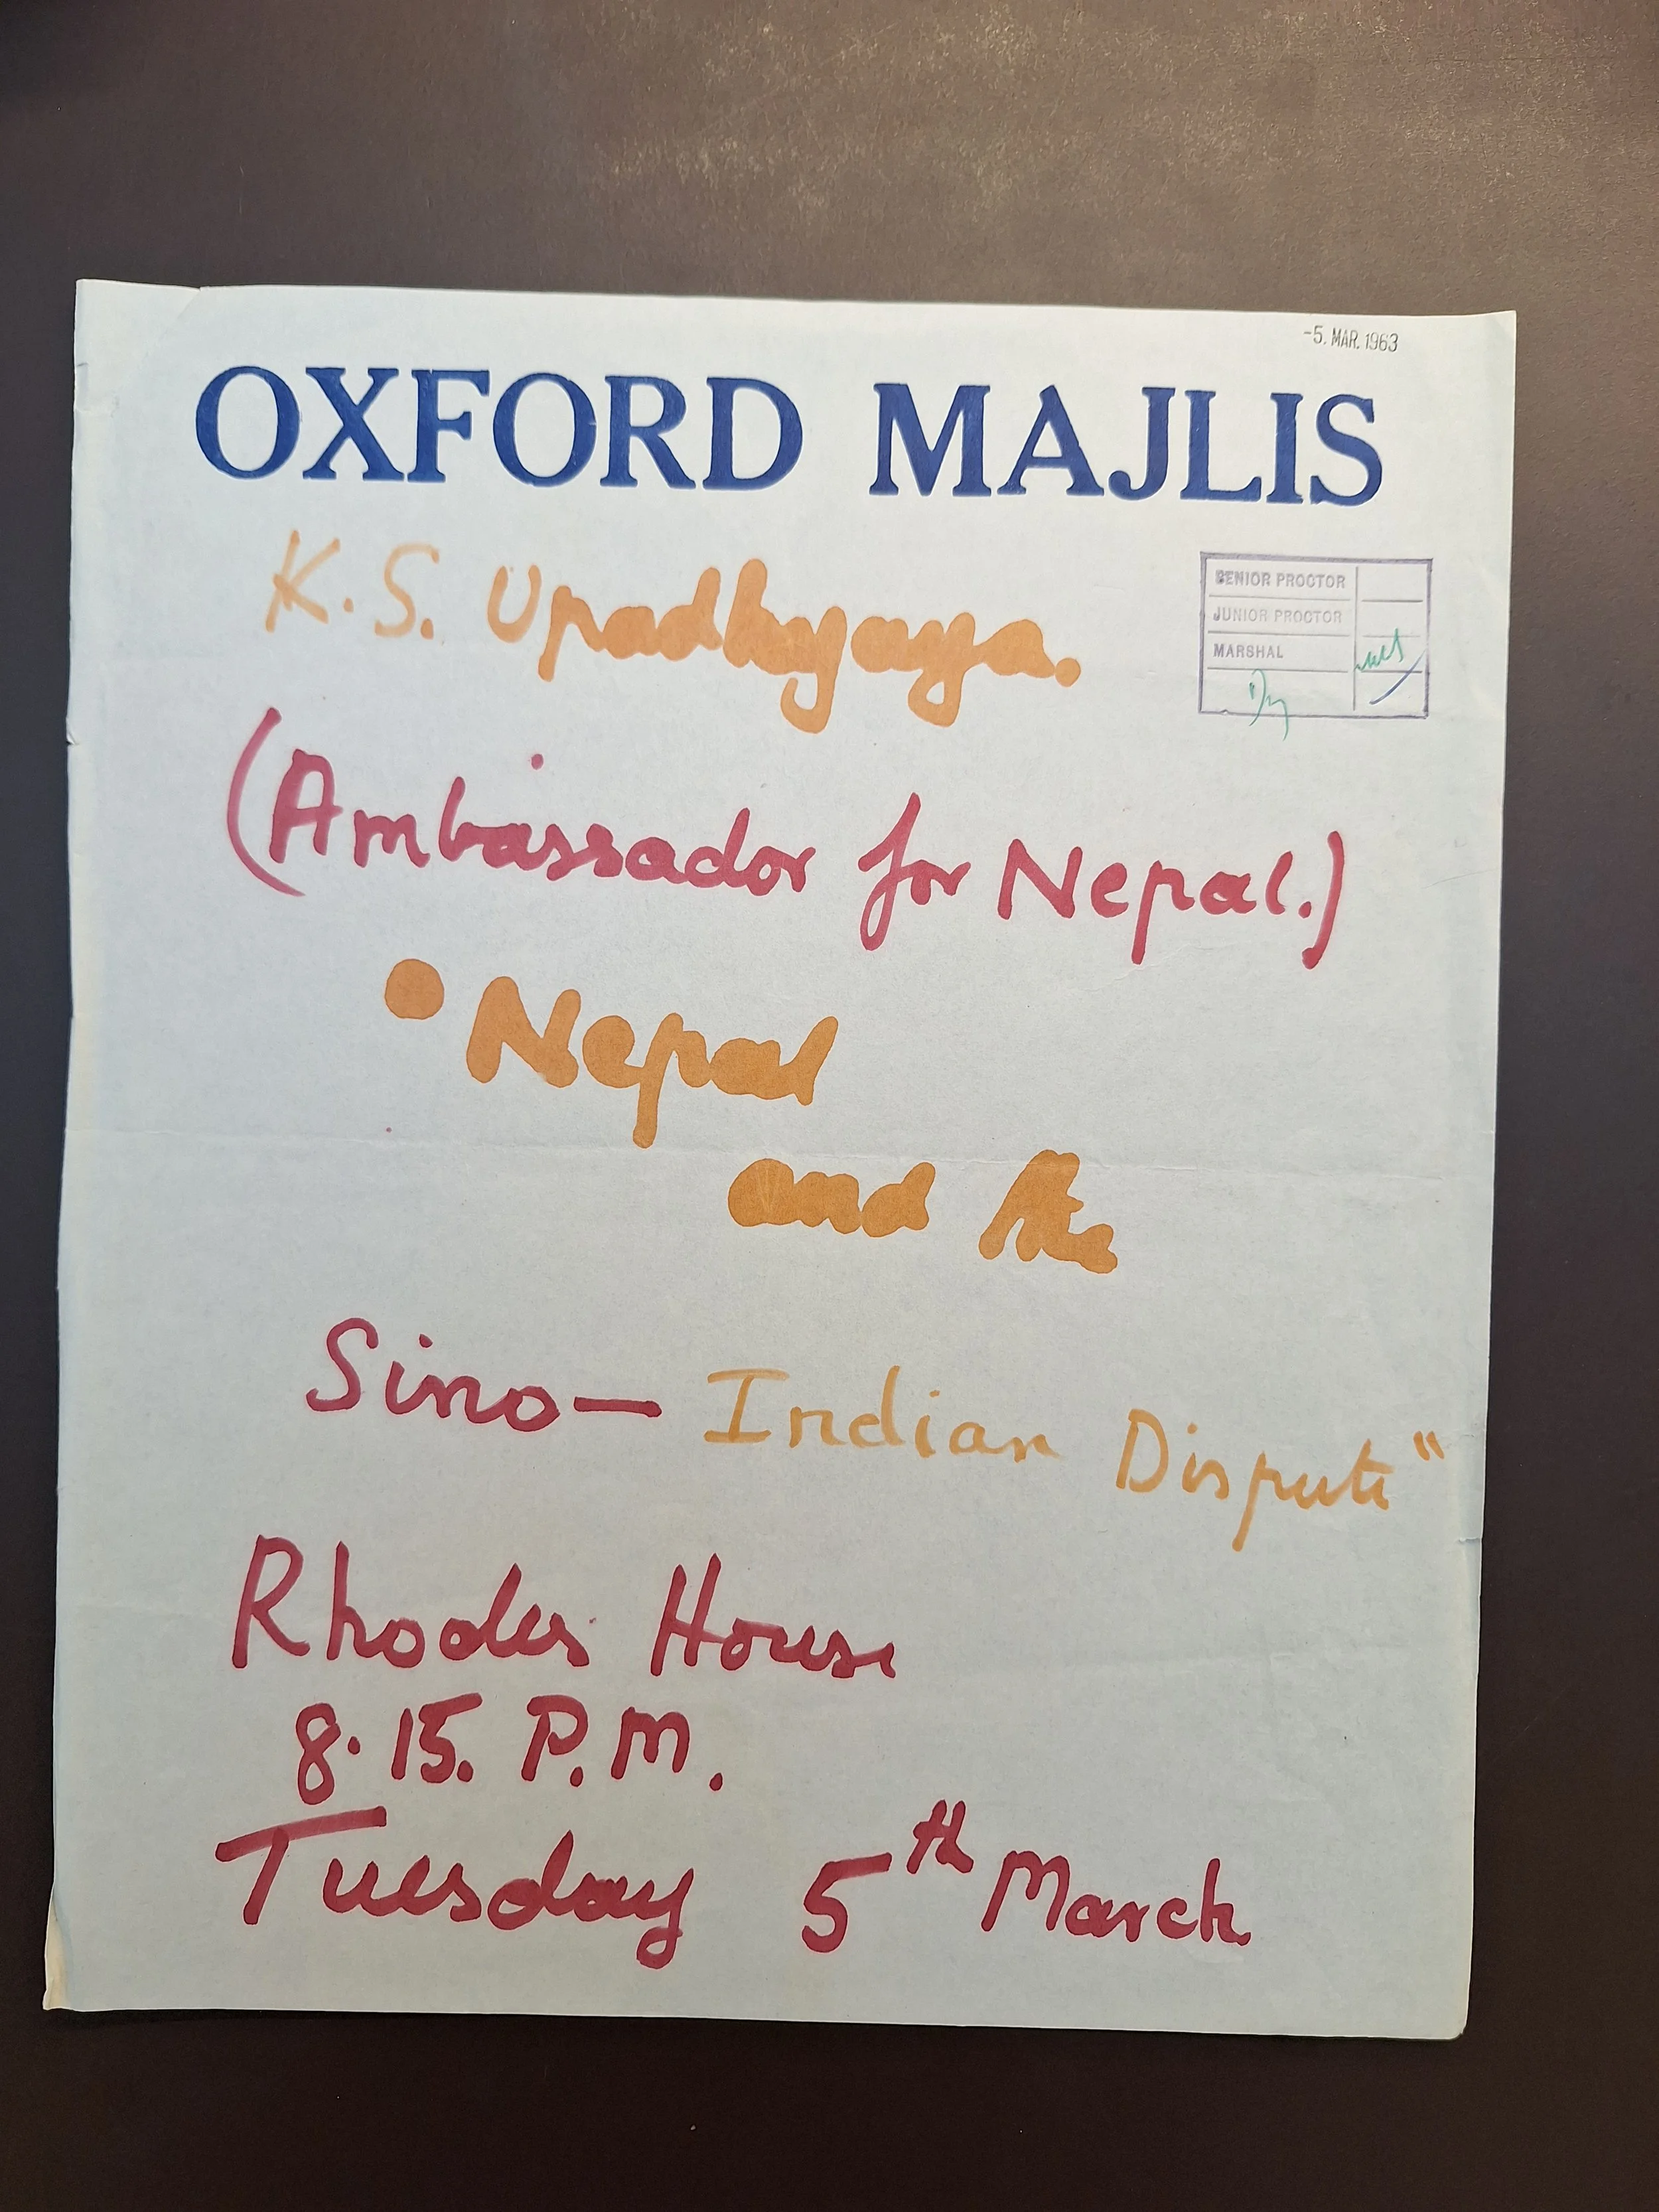 -5. MAR. 1963
OXFORD MAJLIS
K.S. Upadhyaya.
SENIOR PROCTOR
JUNIOR PROCTOR
MARSHAL
(Ambassador for Nepal.)
Nepal
and the
Sino- Indian Dispute"
Rhodes House
8.15. P.M.
Tuesday 5th March